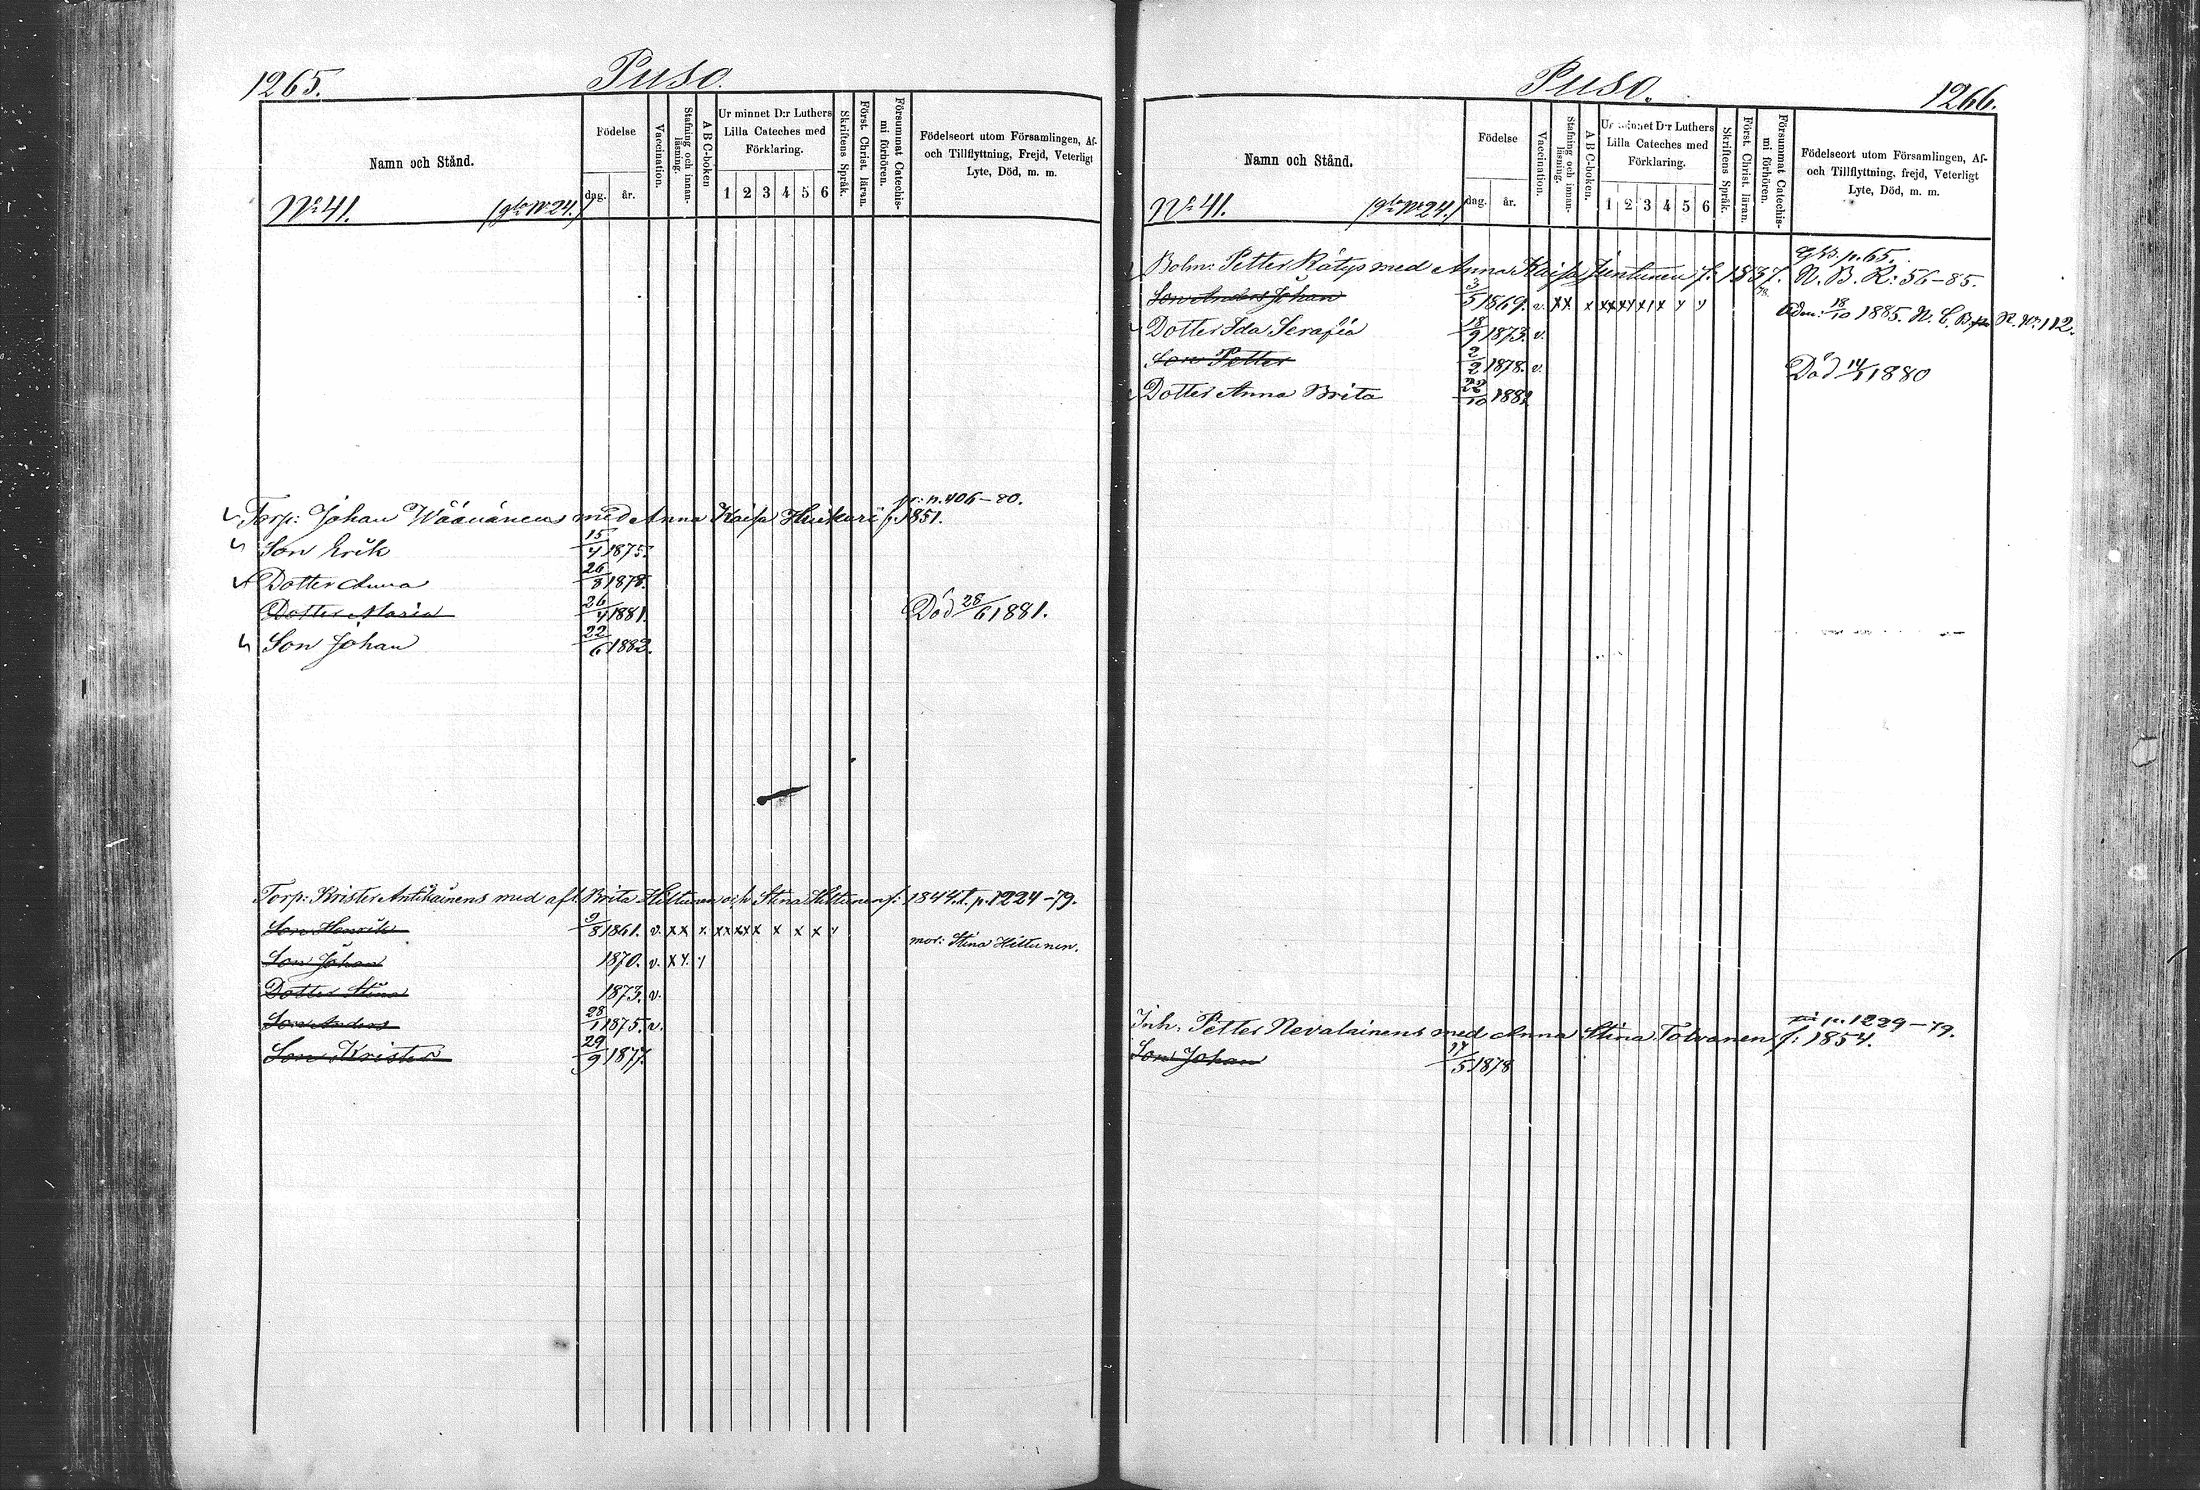 1265.
Puso.
Namn och Stånd.
Födelse
dag.
år.
Vaccination.
Stafning och innan-läsning.
A B C-boken
Ur minnet D:r Luthers
Lilla Cateches med
Förklaring.
1 2 3 4 5 6
Skriftens Språk.
Först. Christ. läran.
Försummat Catechis-mi förhören.
Födelseort utom Församlingen, Af-
och Tillflyttning, Frejd, Veterligt
Lyte, Död, m. m.
No 41. (gla No 24.)
fr: p. 406-80.
Torp: Johan Wäänänens med Anna Kaisa Huikuri f. 1851.
Son Erik 15/4 1875.
Dotter Anna 26/8 1878.
Dotter Maria 26/4 1881. Död 28/6 1881.
Son Johan 22/6 1882.
Torp: Krister Antikainens med afl. Brita Hiltunen och Stina Hiltunen f: 1844. p. 1224-79.
Son Henrik 9/8 1861. v. x x x x x x x x x x x
mor: Stina Hiltunen.
Son Johan 1870. v. x x x
Dotter Stina 1873. v.
Son Anders 28/1 1875. v.
Son Krister 29/9 1877.
Puso.
1266.
Namn och Stånd.
Födelse
dag.
år.
Vaccination.
Stafning och innan-läsning.
A B C-boken.
Ur minnet D:r Luthers
Lilla Cateches med
Förklaring.
1 2 3 4 5 6
Skriftens Språk.
Först. Christ. läran.
Försummat Catechis-mi förhören.
Födelseort utom Församlingen, Af-
och Tillflyttning, frejd, Veterligt
Lyte, Död, m. m.
No 41. (gla No 24.)
p. 65.
Bolm: Petter Rätys med Anna Kaisa Juntunen f: 1837. N. B. R: 56-85.
Son Anders Johan 3/5 1869. v. x x x x x x x x x x x 18/10 1885. N. C. B. R. No: 112.
Dotter Ida Serafia 18/9 1873. v.
Son Petter 2/2 1878. v. Död 14/1 1880
Dotter Anna Brita 22/10 1881
p. 1229-79.
Inh: Petter Nevalainens med Anna Stina Tolvanen f: 1854.
Son Johan 17/5 1878